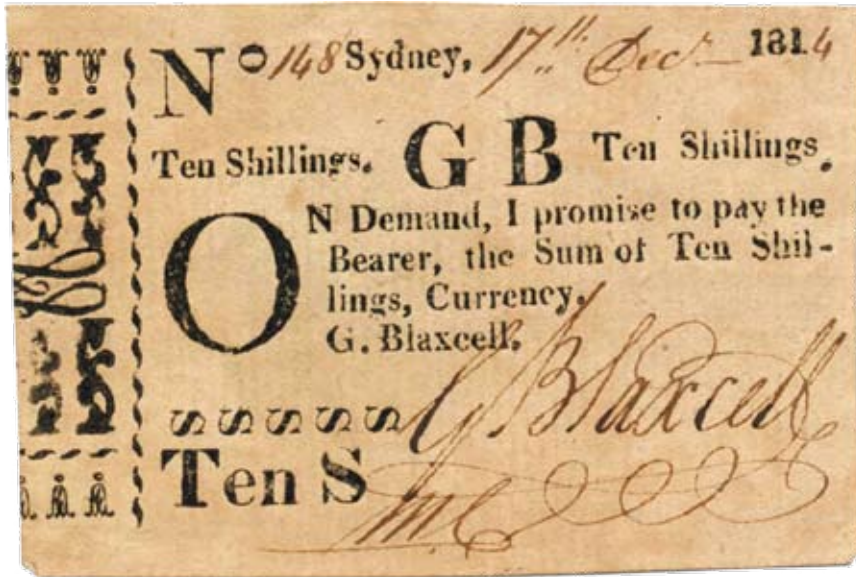 No 148 Sydney, 17th Decr 1814
Ten Shillings. G B Ten Shillings.
ON Demand, I promise to pay the
Bearer, the Sum of Ten Shil-
lings, Currency.
G. Blaxcell.
S S S S S G Blaxcell
Ten S